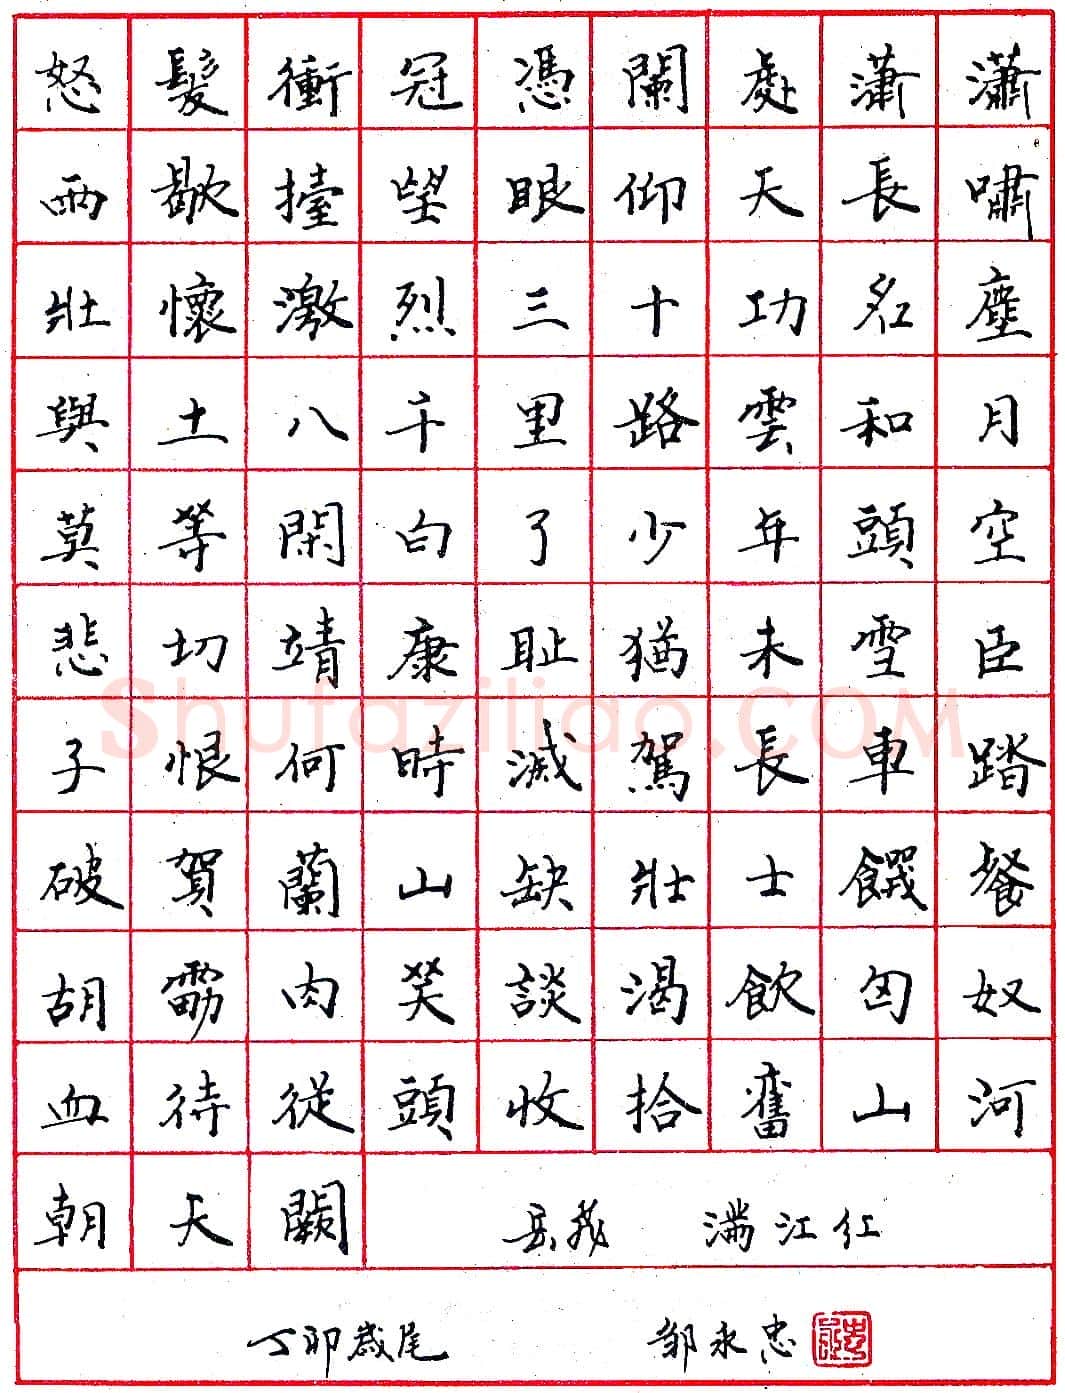 怒髮衝冠憑闌處瀟瀟
雨歇擡望眼仰天長嘯
壯懷激烈三十功名塵
與土八千里路雲和月
莫等閑白了少年頭空
悲切靖康耻猶未雪臣
子恨何時滅駕長車踏
破賀蘭山缺壯士饑餐
胡虜肉笑談渴飲匈奴
血待從頭收拾舊山河
朝天闕 岳飛 滿江红
丁卯歲尾 邹永忠
Shufaziliao.COM